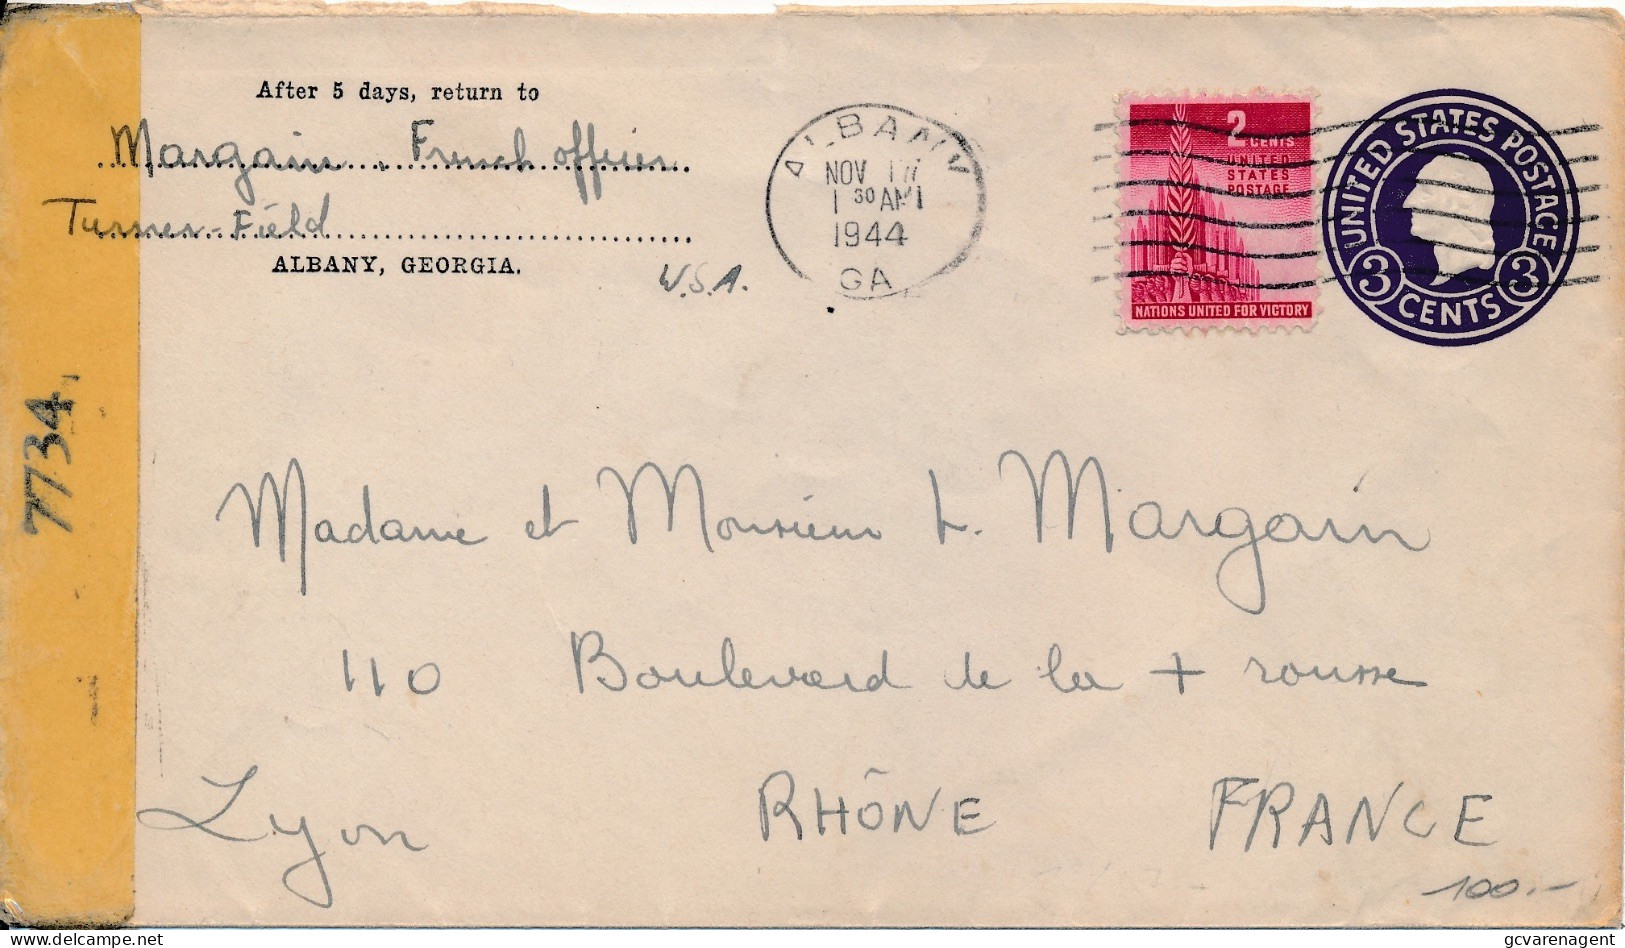 After 5 days, return to
Margain . French officer
Turner-Field
ALBANY, GEORGIA.
U.S.A.
ALBANY
NOV 17
1 30 AM
1944
GA
2
CENTS
UNITED
STATES
POSTAGE
NATIONS UNITED FOR VICTORY
UNITED STATES POSTAGE
3 CENTS 3
7734
Madame et Monsieur L. Margain
110 Boulevard de la + rousse
Lyon RHÔNE FRANCE
100.-
delcampe.net
gcvarenagent